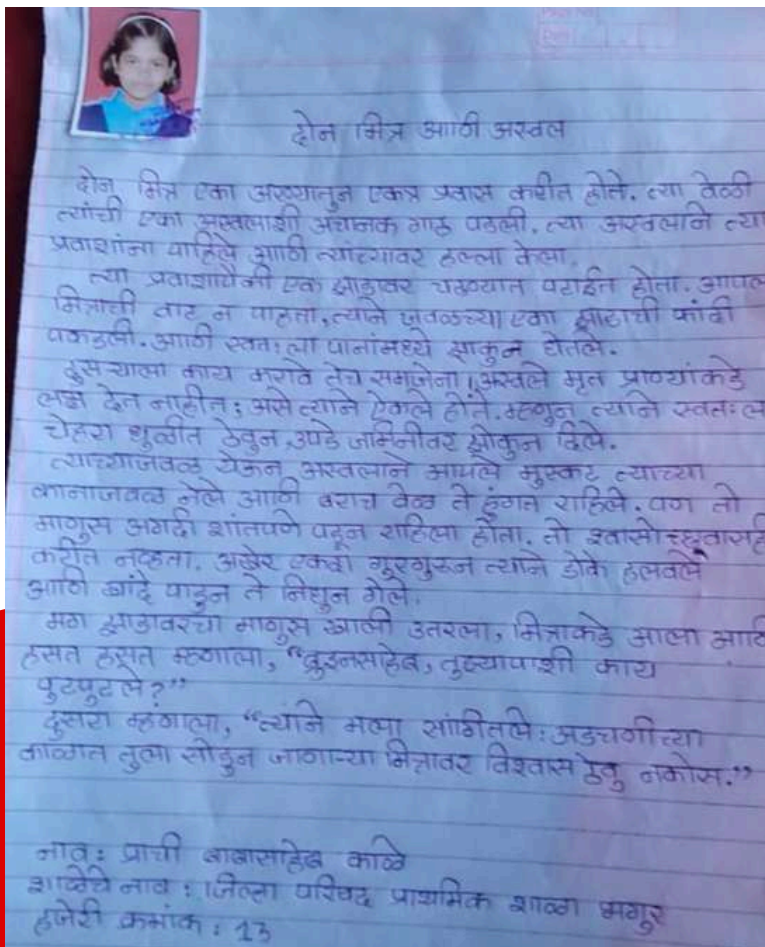 दोन मित्र आणि अस्वल
दोन मित्र एका अरण्यातुन एकत्र प्रवास करीत होते. त्या वेळी
त्यांची एका अस्वलाशी अचानक गाठ पडली. त्या अस्वलाने त्या
प्रवाशांना पाहिले आणि त्यांच्यावर हल्ला केला.
त्या प्रवाशांपैनी एक झाडावर चढण्यात पटाईत होता. आपल
मित्राची वाट न पाहता, त्याने जवळच्या एका झाडाची फांदी
पकडली. आणि स्वत:ला पानांमध्ये झाकुन घेतले.
दुसऱ्याला काय करावे तेच समजेना। अस्वले मृत प्राण्यांकडे
लक्ष देत नाहीत; असे त्याने ऐकले होते. म्हणुन त्याने स्वत:ल
चेहरा धुळीत ठेवुन उपडे जमिनीवर झोकुन दिले.
त्याच्याजवळ येऊन अस्वलाने आपले मुस्कट त्याच्या
कानाजवळ नेले आणि बराच वेळ ते हुंगत राहिले. पण तो
माणुस अगदी शांतपणे पडून राहिला होता. तो श्वासोच्छ्वासह
करीत नव्हता. अखेर एकदा गुरगुरून त्याने डोके हलवले
आणि खांदे पाडुन ते निघुन गेले.
मग झाडावरचा माणुस खाली उतरला, मित्राकडे आला आणि
हसत हसत म्हणाला, “ब्रुइनसाहेब, तुझ्यापाशी काय
पुटपुटले?”
दुसरा म्हणाला, “त्याने मला सांगीतले: अडचणीच्या
काळात तुला सोडुन जाणाऱ्या मित्रावर विश्वास ठेवु नकोस.”
नाव: प्राची बाबासाहेब काळे
शाळेचे नाव : जिल्हा परिषद प्राथमिक शाळा भगुर
हजेरी क्रमांक : 13